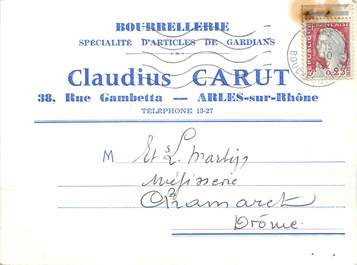 BOURRELLERIE
SPÉCIALITÉ D'ARTICLES DE GARDIANS
Claudius CARUT
38, Rue Gambetta — ARLES-sur-Rhône
TÉLÉPHONE 13-27
0,25
M Ets L. Martin
Mégisserie
Chamaret
Drôme